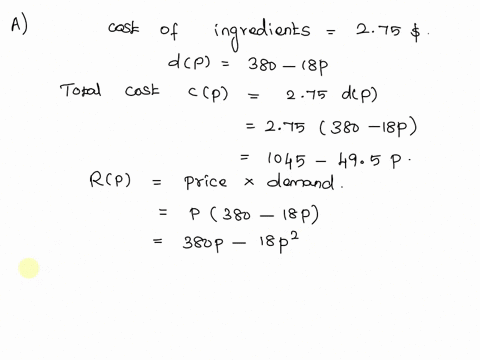 A) cost of ingredients = 2.75 $.
d(p) = 380 - 18p
Total cost c(p) = 2.75 d(p)
= 2.75 (380 - 18p)
= 1045 - 49.5 p.
R(p) = price × demand.
= p (380 - 18p)
= 380p - 18p²